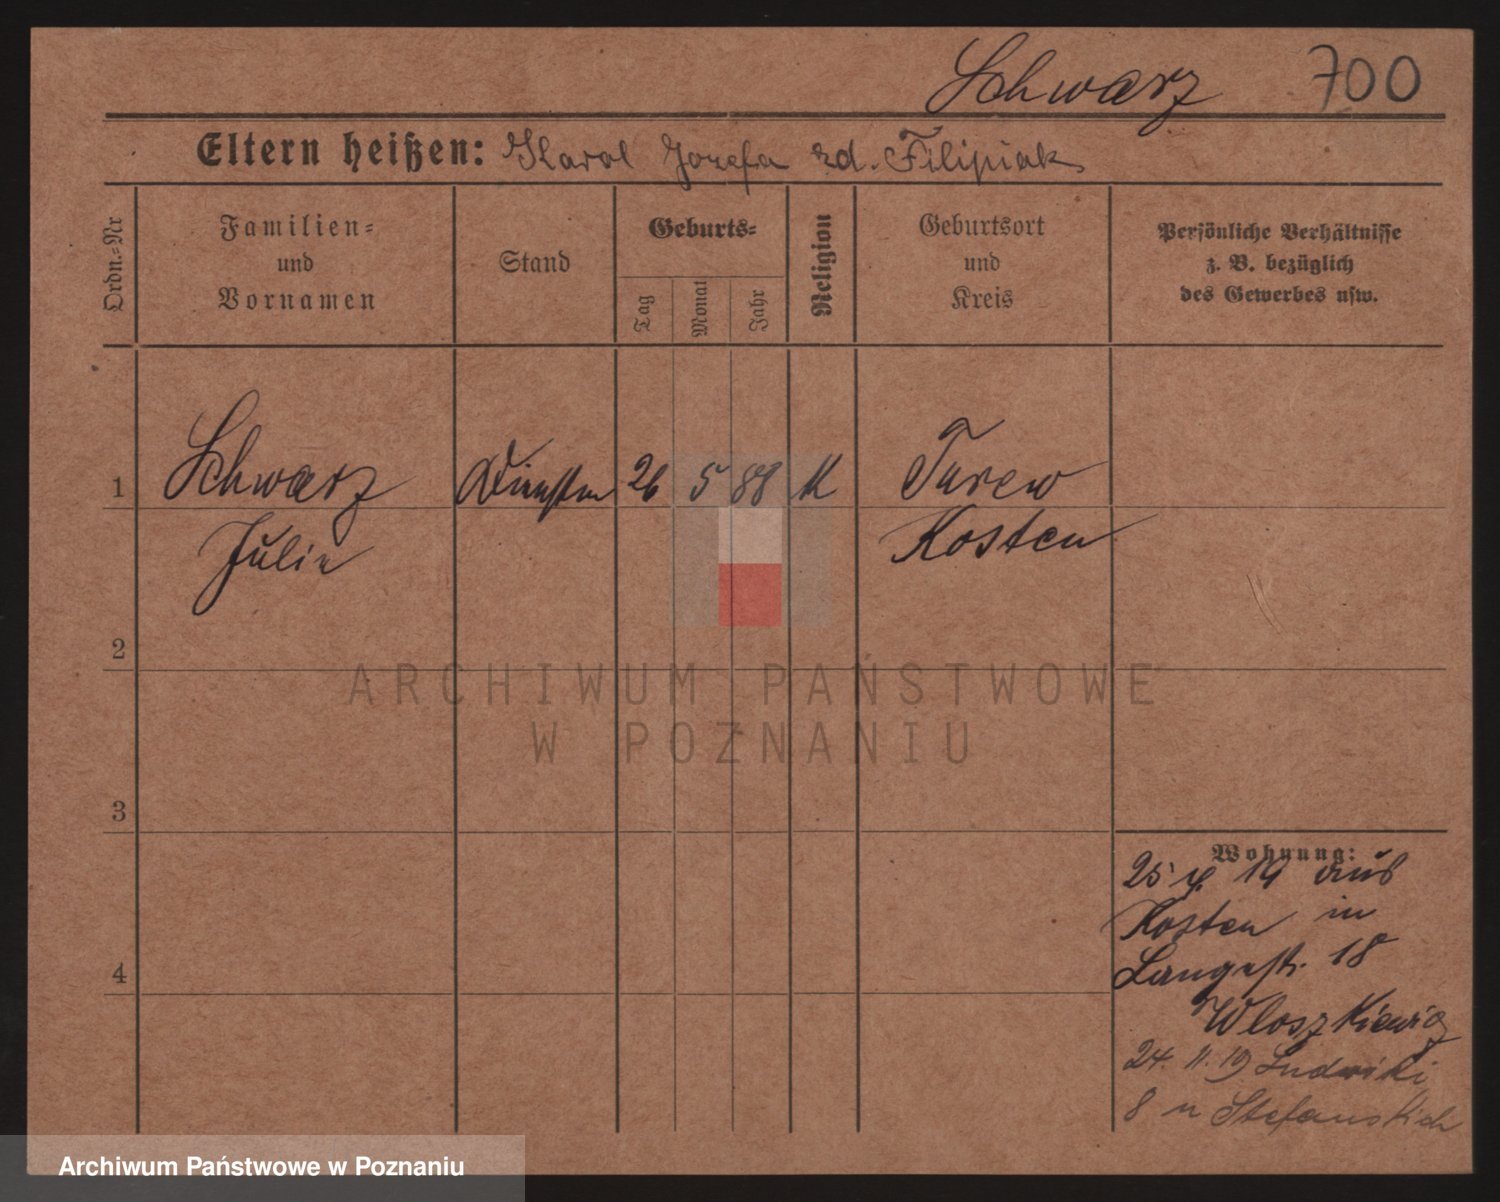 Schwarz 700
Eltern heißen: Karol Jozefa zd. Filipiak
Ordn.-Nr
Familien-
und
Vornamen
Stand
Geburts-
Tag
Monat
Jahr
Religion
Geburtsort
und
Kreis
Persönliche Verhältnisse
z. B. bezüglich
des Gewerbes usw.
1 Schwarz 26 5 88 K Turew
Julia Kosten
2
3
4
Wohnung:
25 19 aus
Kosten in
Langestr. 18
Wloszkiewicz
24. 11. 19 Ludwiki
8 u Stefanskich
ARCHIWUM PAŃSTWOWE
W POZNANIU
Archiwum Państwowe w Poznaniu